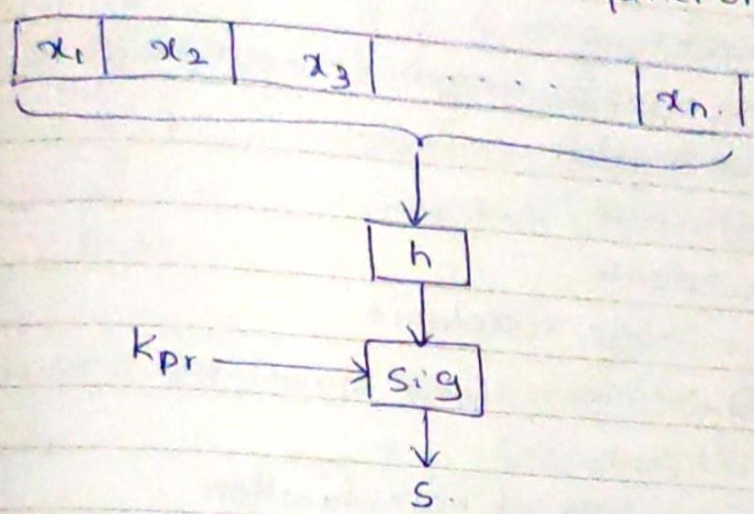 x₁ x₂ x₃ . . . . . xₙ.
h
Kpr
Sig
S.